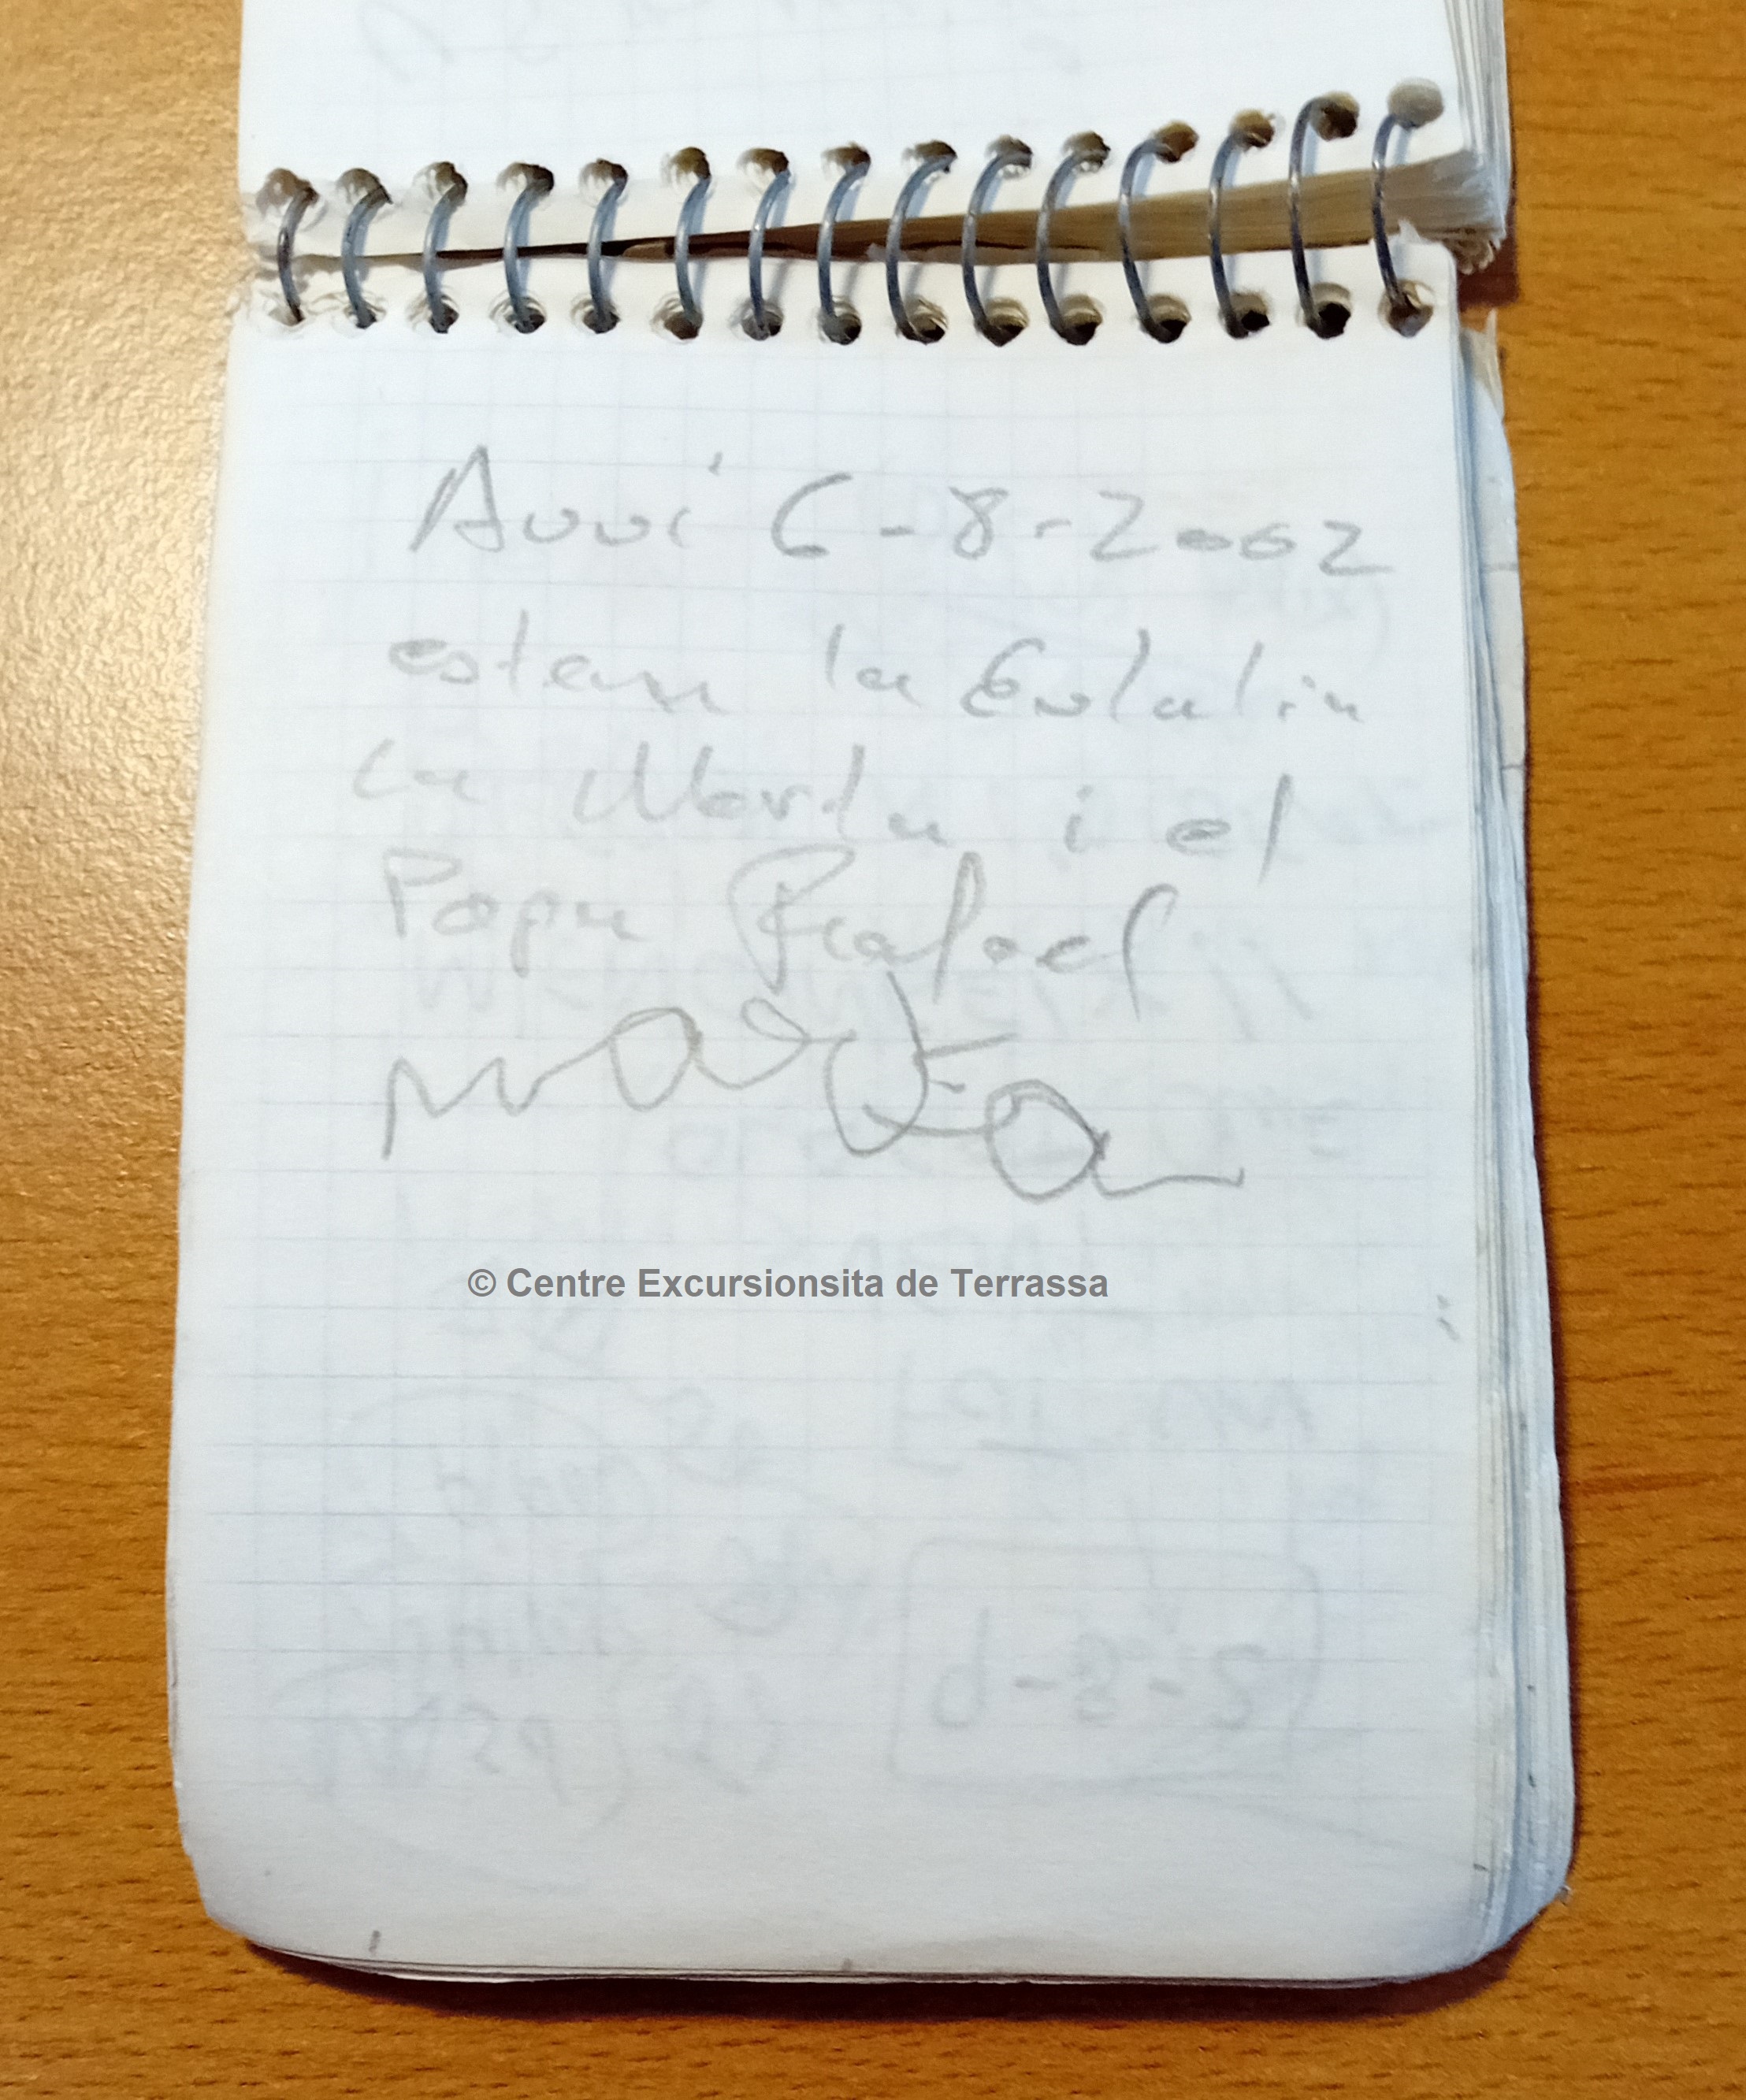 Avui 6-8-2002
estem la Eulalia
La Marta i el
Papa Rafael
marta
© Centre Excursionsita de Terrassa